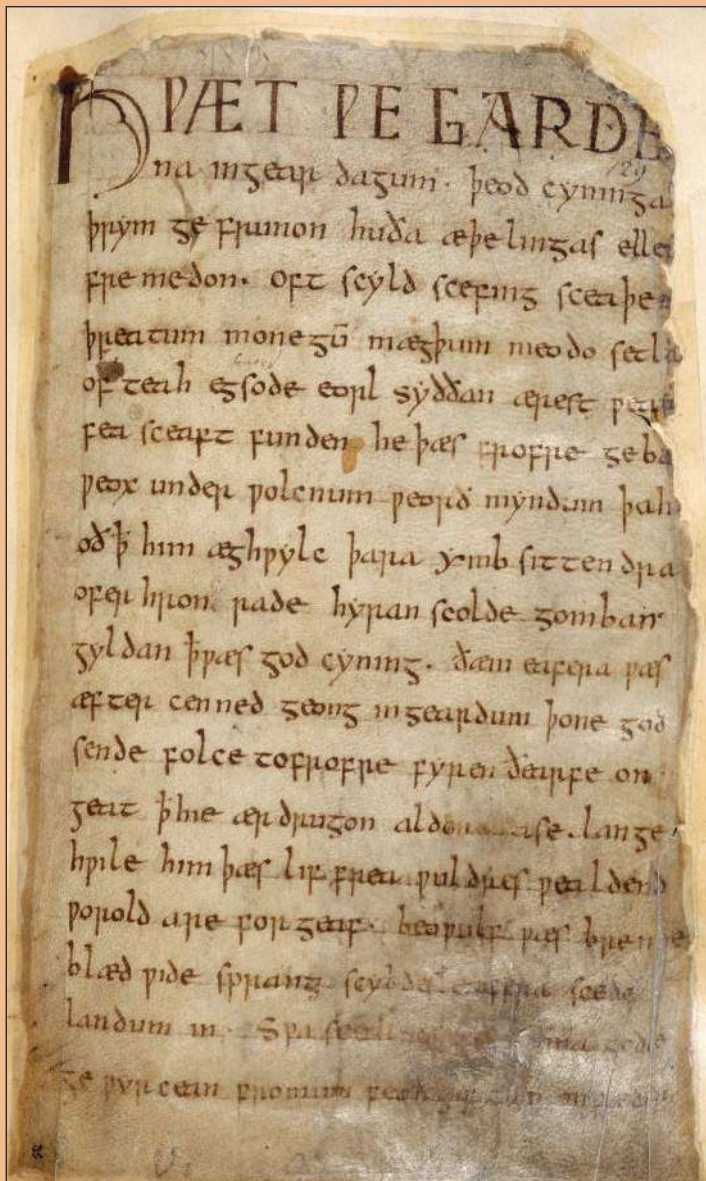 HǷÆT ǷE GARDE
129
na ingear dagum. þeod cyninga
þrym ge frunon huða æþelingas elle
fremedon. oft scyld scefing sceaþe
þreatum monegū mægþum meodo setla
of teah egsode eorl syððan ærest
fea sceaft funden he þæs frofre geba
ƿeox under ƿolcnum ƿeorð myndum þah
oð ꝥ him æghƿylc þara ymb sittendra
ofer hron rade hyran scolde gomban
gyldan ꝥ ƿæs god cyning. ðæm eafera ƿæs
æfter cenned geong ingeardum þone god
sende folce tofrofre fyren ðearfe on
geat ꝥ hie ær drugon aldor ase. lange
hƿile him þæs lif frea ƿuldres ƿealdend
ƿorold are for geaf. beoƿulf ƿæs breme
blæd ƿide sprang scyldes eafera scede
landum in. Sƿa sceal ma gode
ge ƿyrcean fromum feoh giftum